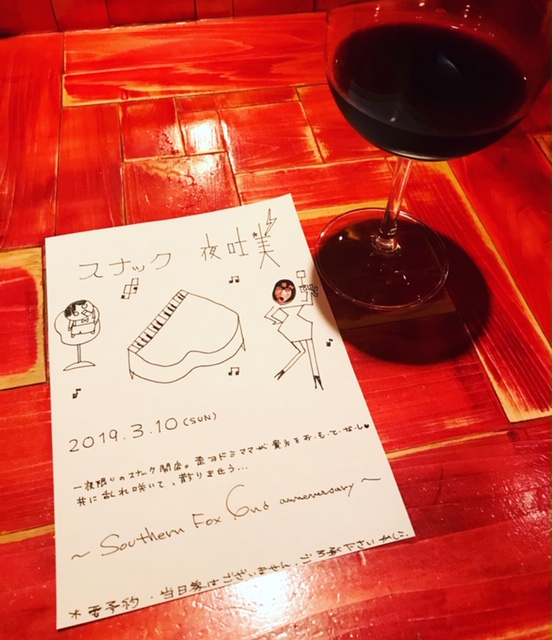 スナック 夜吐実
2019.3.10(SUN)
一夜限りのスナック開店。歪ヨドミママが貴方をおもてなし♥
共に乱れ咲いて、散りませう...
~ Southern Fox 6nd anneversary ~
*要予約・当日券はございません。